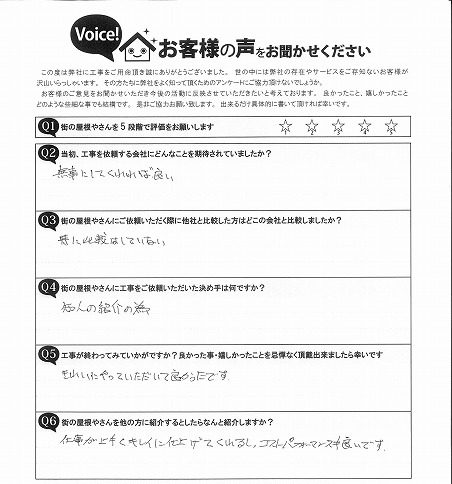 Voice!
お客様の声をお聞かせください
この度は弊社に工事をご用命頂き誠にありがとうございました。 世の中には弊社の存在やサービスをご存知ないお客様が
沢山いらっしゃいます。 その方たちに弊社をよく知って頂くためのアンケートにご協力頂けないでしょうか。
お客様のご意見をお聞かせいただき今後の活動に反映させていただきたいと考えております。 良かったこと、嬉しかったこと
どのような些細な事でも結構です。 是非ご協力お願い致します。 出来るだけ具体的に書いて頂ければ幸いです。
Q1 街の屋根やさんを5段階で評価をお願いします
1 2 3 4 5
Q2 当初、工事を依頼する会社にどんなことを期待されていましたか?
無事にしてくれれば良い
Q3 街の屋根やさんにご依頼いただく際に他社と比較した方はどこの会社と比較しましたか?
特に比較はしていない
Q4 街の屋根やさんに工事をご依頼いただいた決め手は何ですか?
知人の紹介の為
Q5 工事が終わってみていかがですか?良かった事・嬉しかったことを忌憚なく頂戴出来ましたら幸いです
きれいにやっていただいて良かったです
Q6 街の屋根やさんを他の方に紹介するとしたらなんと紹介しますか?
仕事が上手くキレイに仕上げてくれるし、コストパフォーマンスも良いです。